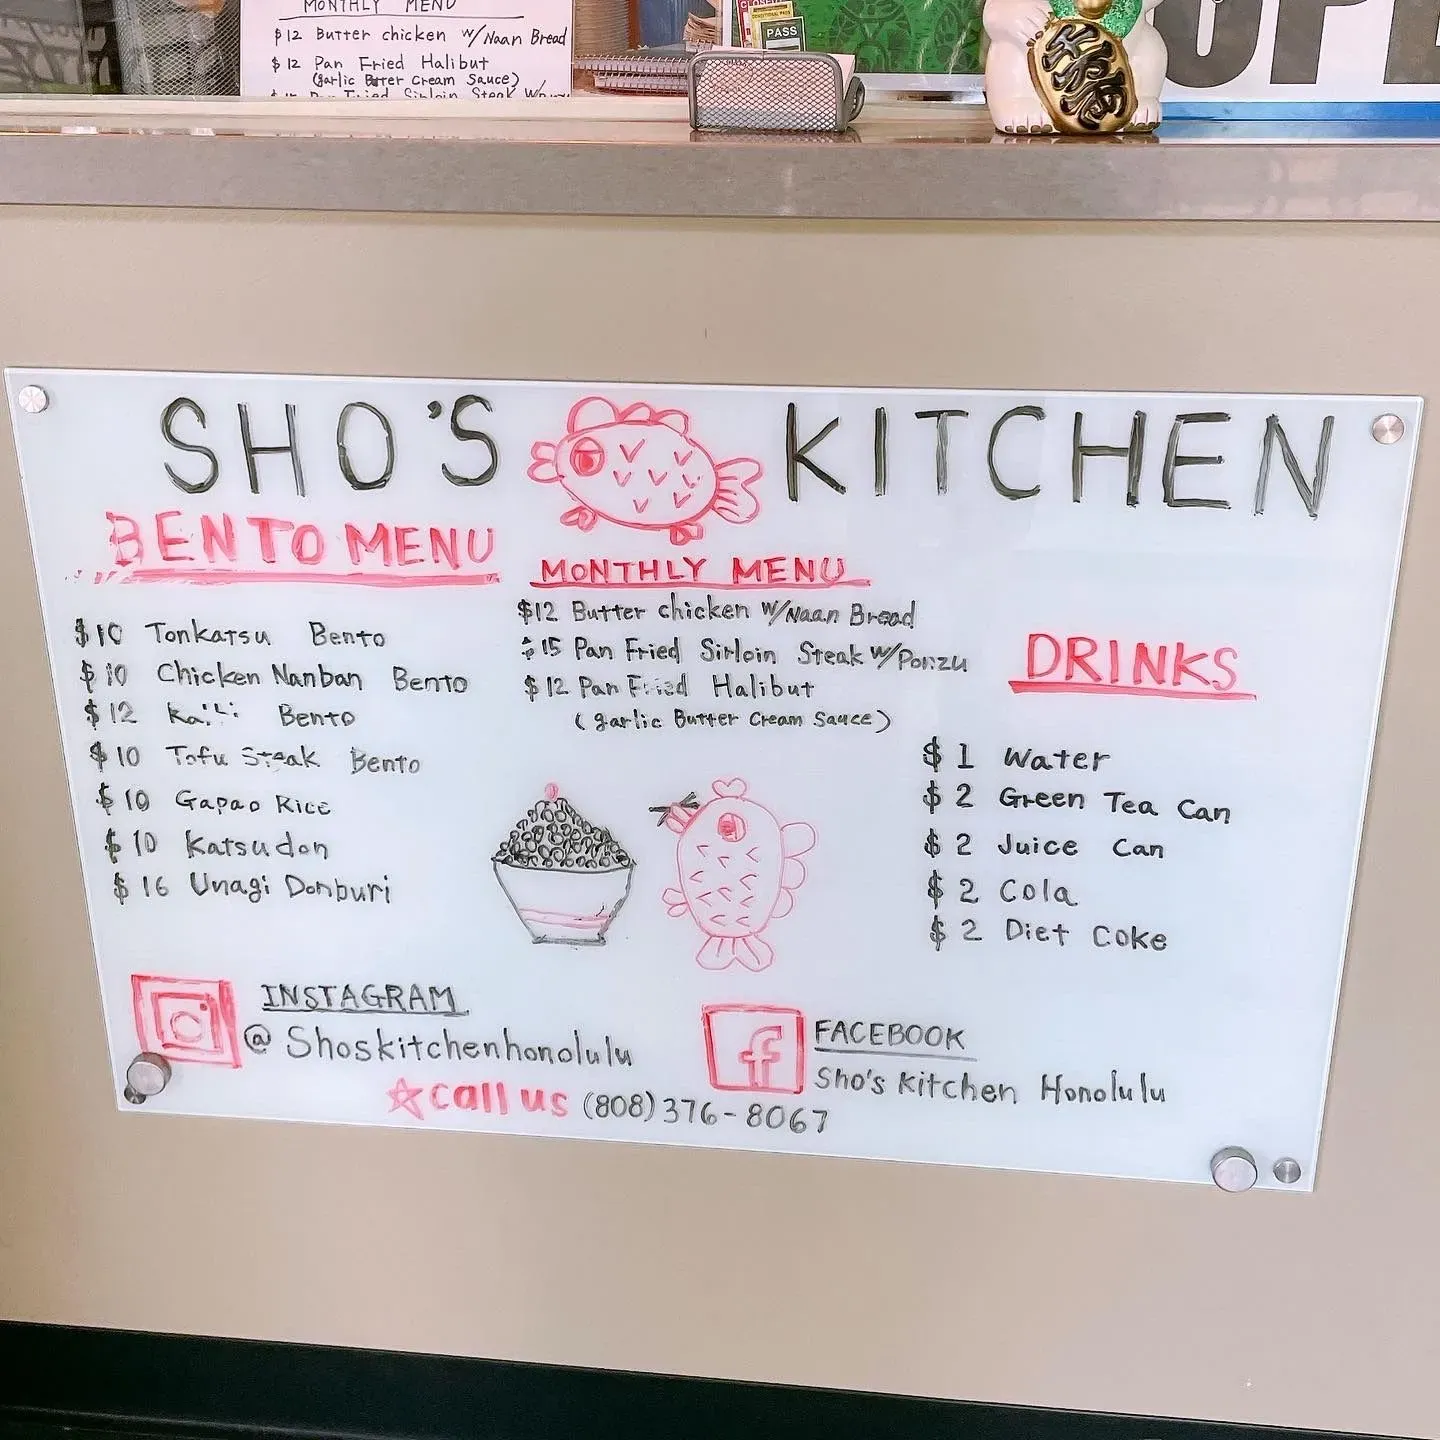 MONTHLY MENU
$12 Butter chicken w/Naan Bread
$12 Pan Fried Halibut
(garlic Butter Cream Sauce)
Pan Fried Sirloin Steak
PASS
SHO'S KITCHEN
BENTO MENU
$10 Tonkatsu Bento
$10 Chicken Nanban Bento
$12 Bento
$10 Tofu Steak Bento
$10 Gapao Rice
$10 Katsudon
$16 Unagi Donburi
MONTHLY MENU
$12 Butter chicken w/Naan Bread
$15 Pan Fried Sirloin Steak w/Ponzu
$12 Pan Fried Halibut
(garlic Butter Cream Sauce)
DRINKS
$1 Water
$2 Green Tea Can
$2 Juice Can
$2 Cola
$2 Diet Coke
INSTAGRAM
@Shoskitchenhonolulu
FACEBOOK
Sho's Kitchen Honolulu
☆call us (808)376-8067